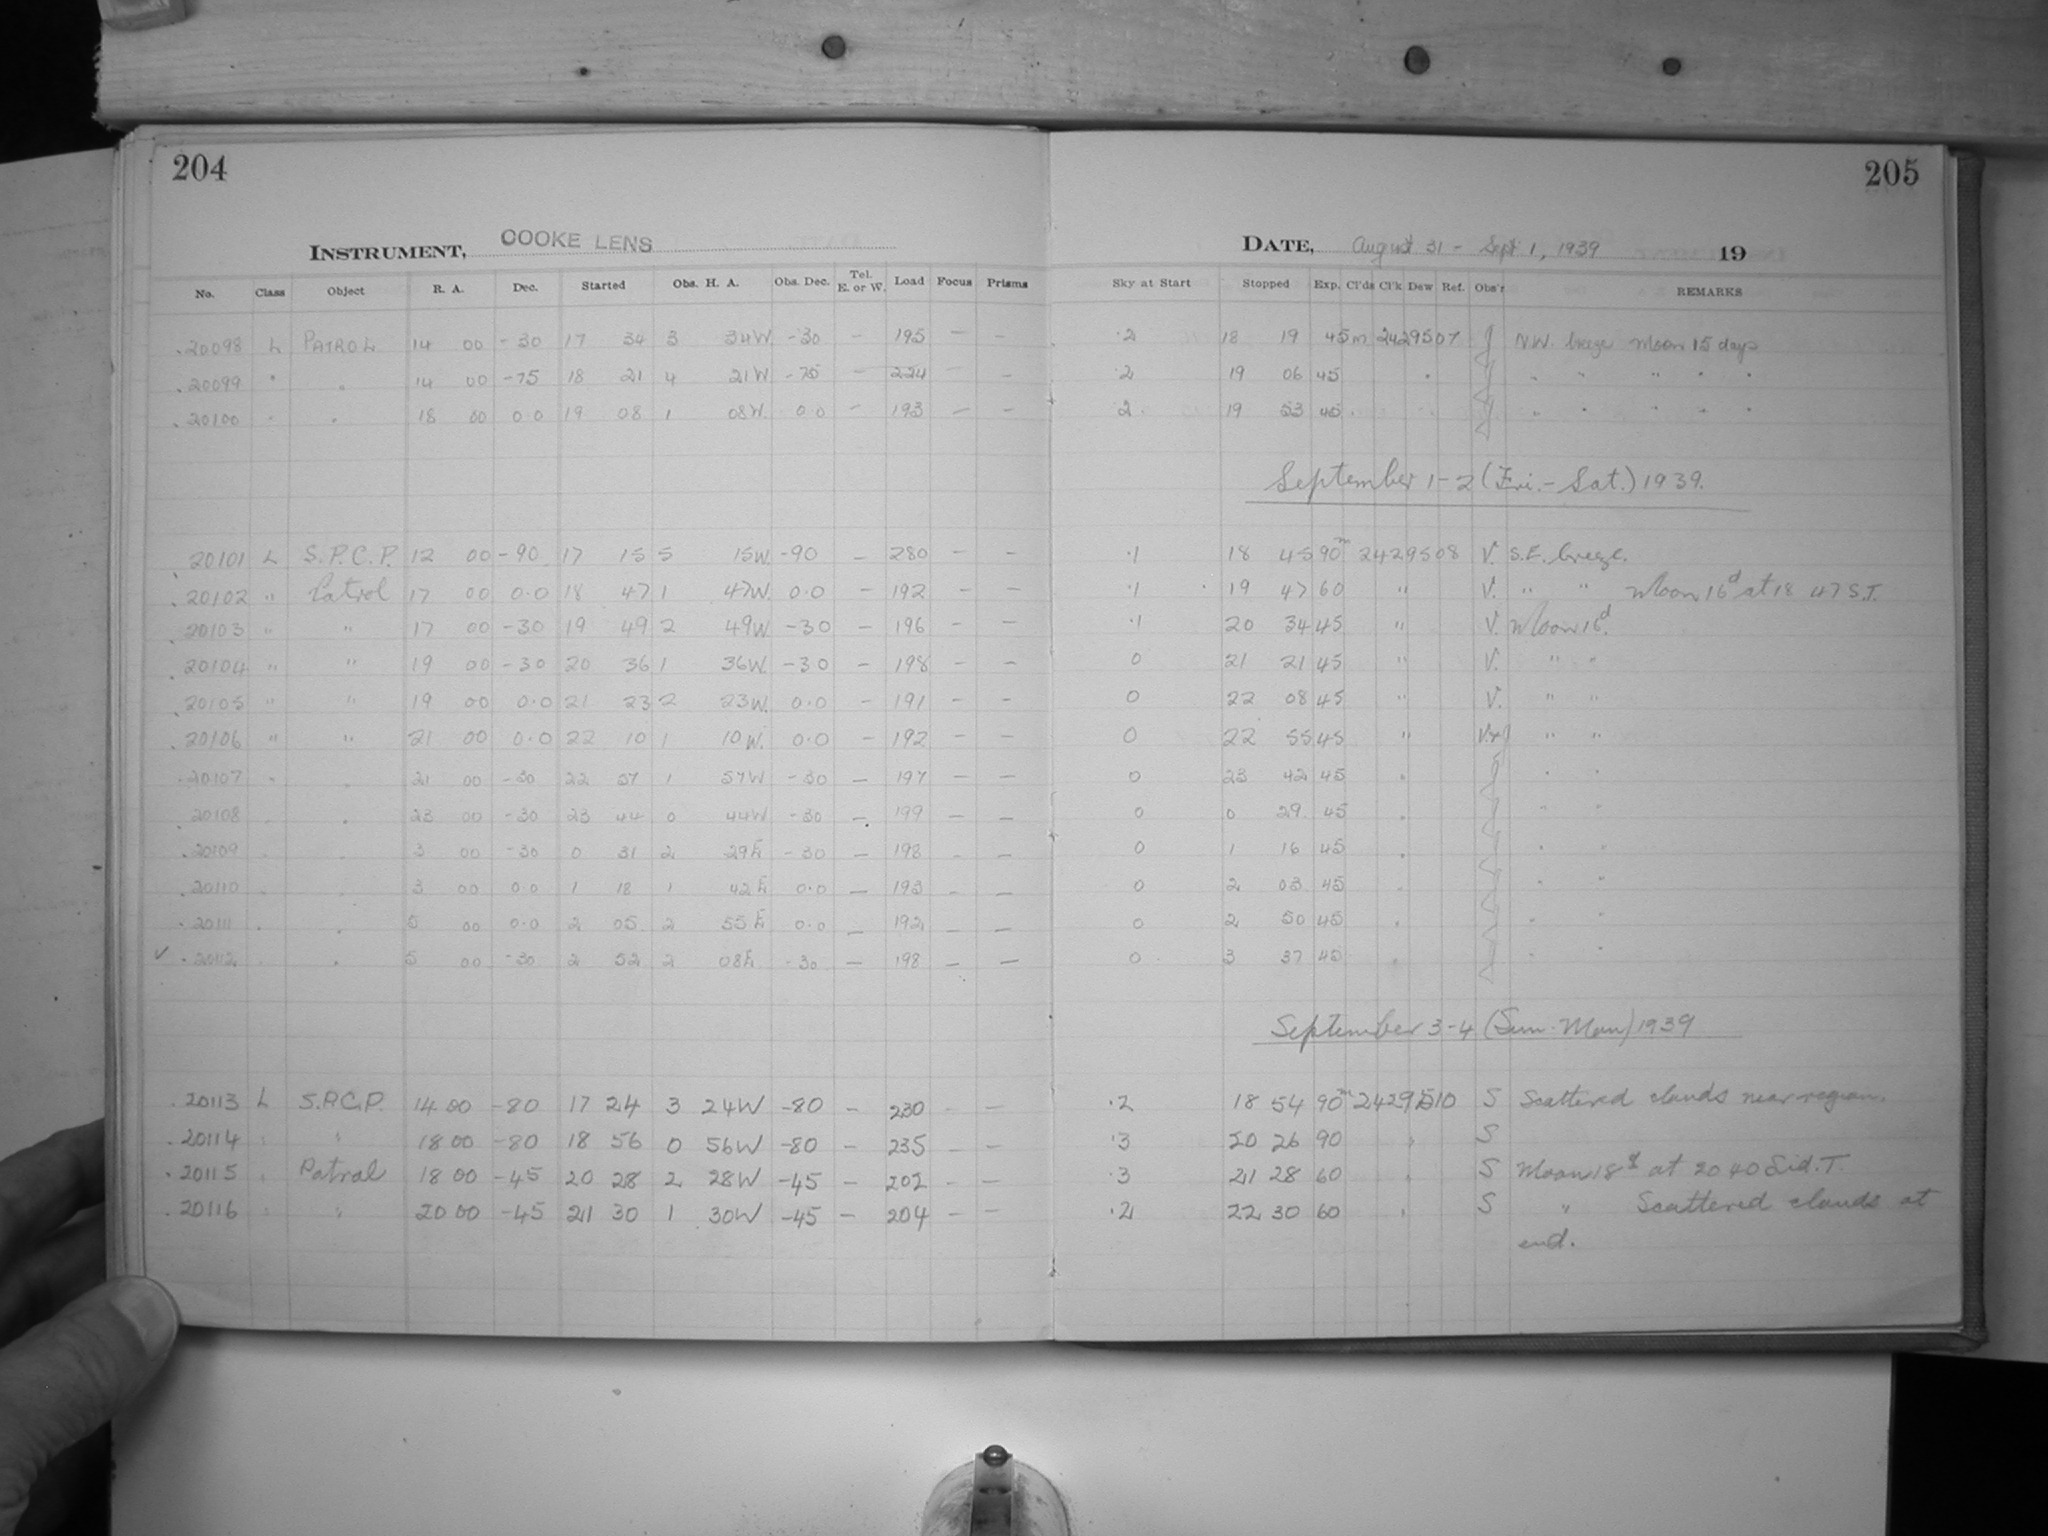 204
205
INSTRUMENT, COOKE LENS
DATE, August 31 - Sept 1, 1939 19
No. Class Object R. A. Dec. Started Obs. H. A. Obs. Dec. Tel. E. or W. Load Focus Prisms Sky at Start Stopped Exp. Cl'ds Cl'k Dew Ref. Obs'r REMARKS
.20098 L PATROL 14 00 -30 17 34 3 34W -30 - 195 - - .2 18 19 45m 2429507 N.W. breeze Moon 15 days
.20099 " " 14 00 -75 18 21 4 21W -75 - 224 - - .2 19 06 45 " " " " " "
.20100 " " 18 00 0.0 19 08 1 08W 0.0 - 193 - - 2 19 53 45 " " " " " "
September 1-2 (Fri.-Sat.) 1939.
.20101 L S.P.C.P. 12 00 -90 17 15 5 15W. -90 - 280 - - .1 18 45 90m 2429508 V. S.E. breeze.
.20102 " Patrol 17 00 0.0 18 47 1 47W. 0.0 - 192 - - .1 19 47 60 " V. " " Moon 16d at 18 47 S.T.
.20103 " " 17 00 -30 19 49 2 49W. -30 - 196 - - .1 20 34 45 " V. Moon 16d.
.20104 " " 19 00 -30 20 36 1 36W. -30 - 198 - - 0 21 21 45 " V. " "
.20105 " " 19 00 0.0 21 23 2 23W. 0.0 - 191 - - 0 22 08 45 " V. " "
.20106 " " 21 00 0.0 22 10 1 10W. 0.0 - 192 - - 0 22 55 45 " " "
.20107 " " 21 00 -30 22 57 1 57W -30 - 197 - - 0 23 42 45 " " "
.20108 " " 23 00 -30 23 44 0 44W -30 - 199 - - 0 0 29 45 " " "
.20109 " " 3 00 -30 0 31 2 29E -30 - 198 - - 0 1 16 45 " " "
.20110 " " 3 00 0.0 1 18 1 42E 0.0 - 193 - - 0 2 03 45 " " "
.20111 " " 5 00 0.0 2 05 2 55E 0.0 - 192 - - 0 2 50 45 " " "
✓ .20112 " " 5 00 -30 2 52 2 08E -30 - 198 - - 0 3 37 45 " " "
September 3-4 (Sun-Mon) 1939
.20113 L S.P.C.P. 14 00 -80 17 24 3 24W -80 - 230 - - .2 18 54 90m 2429510 S Scattered clouds near region.
.20114 " " 18 00 -80 18 56 0 56W -80 - 235 - - .3 20 26 90 " S
.20115 " Patrol 18 00 -45 20 28 2 28W -45 - 202 - - .3 21 28 60 " S Moon 18d at 20 40 Sid. T.
.20116 " " 20 00 -45 21 30 1 30W -45 - 204 - - .2 22 30 60 " S " Scattered clouds at
end.